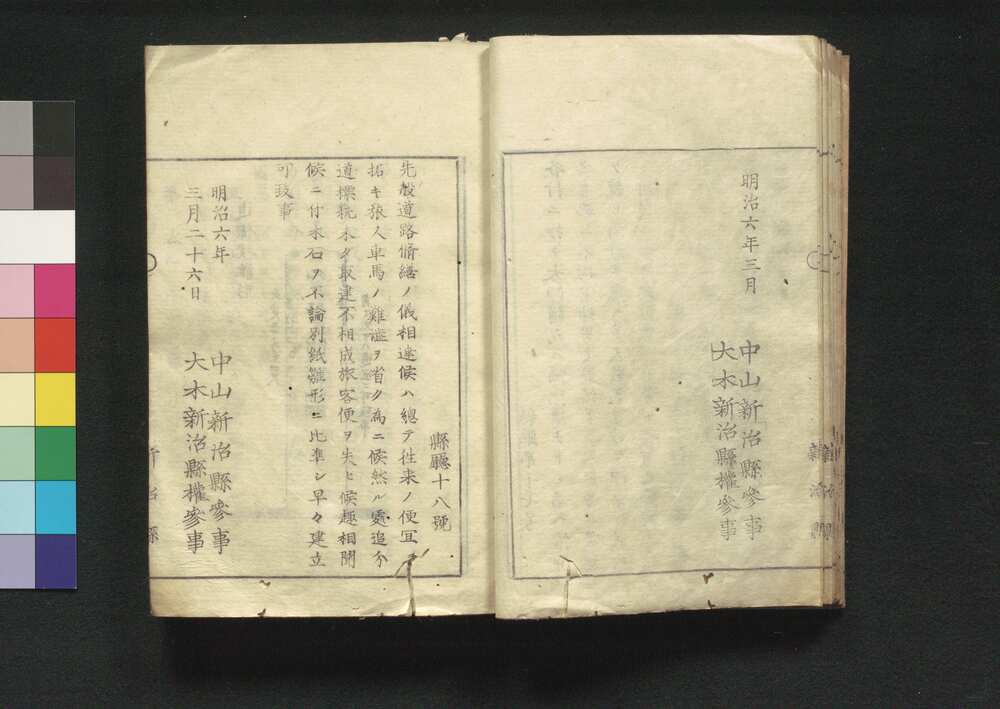 明治六年三月
中山新治縣參事
大木新治縣權參事
縣廳十八號
先般道路脩繕ノ儀相達候ハ總テ往来ノ便宜ヲ
拓キ旅人車馬ノ難澁ヲ省ク為ニ候然ル處追分
道標杭木ノ取建不相成旅客便ヲ失ヒ候趣相聞
候ニ付木石ヲ不論別紙雛形ニ比準シ早々建立
可致事
明治六年
三月二十六日
中山新治縣參事
大木新治縣權參事